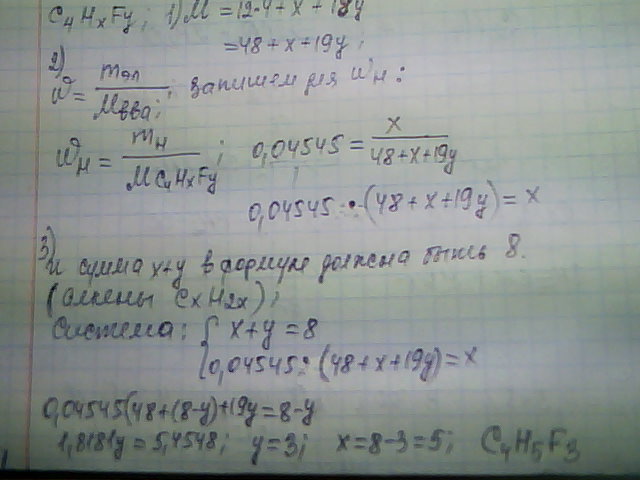 C4HxFy; 1) M = 12·4 + x + 19y
= 48 + x + 19y;
2)
W = mэл / Mвва; ; запишем для WH:
WH = mH / MC4HxFy ; 0,04545 = x / 48+x+19y
0,04545 · (48 + x + 19y) = x
3) И сумма x+y в формуле должна быть 8.
(алкены CxH2x);
Система: { x+y = 8
0,04545 · (48 + x + 19y) = x
0,04545(48+(8-y)+19y = 8-y
1,8181y = 5,4548; y = 3; x = 8-3 = 5; C4H5F3